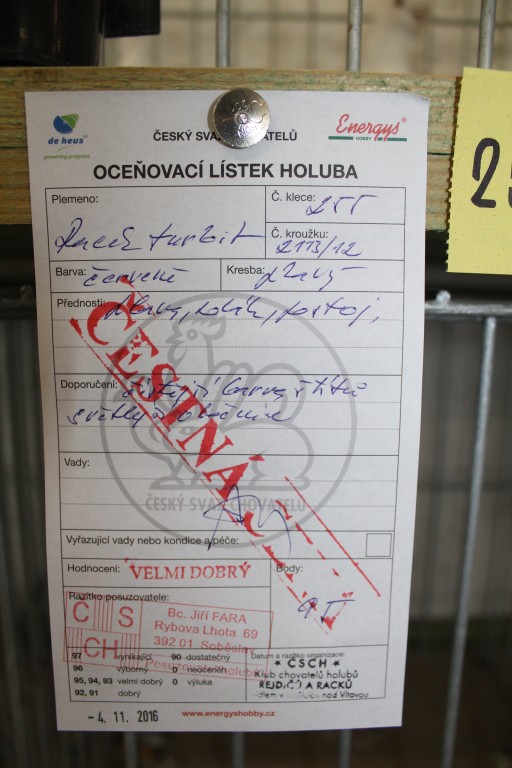 de heus
powering progress
ČESKÝ SVAZ CHOVATELŮ
Energys
HOBBY
OCEŇOVACÍ LÍSTEK HOLUBA
Plemeno:
Racek turbit
Č. klece: 255
Č. kroužku:
2113/12
Barva: červené
Kresba: plavý
Přednosti: hlava, zobák, postoj,
Doporučení: čistější barva štítů
světlejší obočnice
Vady:
ČESTNÁ
ČESKÝ SVAZ CHOVATELŮ
Vyřazující vady nebo kondice a péče:
Hodnocení: VELMI DOBRÝ
Body:
95
Razítko posuzovatele:
ČSCH
Bc. Jiří FARA
Rybova Lhota 69
392 01 Soběslav
Posuzovatel holubů
97 vynikající 90 dostatečný
96 výborný 0 neoceněn
95, 94, 93 velmi dobrý 0 výluka
92, 91 dobrý
Datum a razítko organizace:
* ČSCH *
Klub chovatelů holubů
REJDIČŮ A RACKŮ
nad Vltavou
- 4. 11. 2016
www.energyshobby.cz